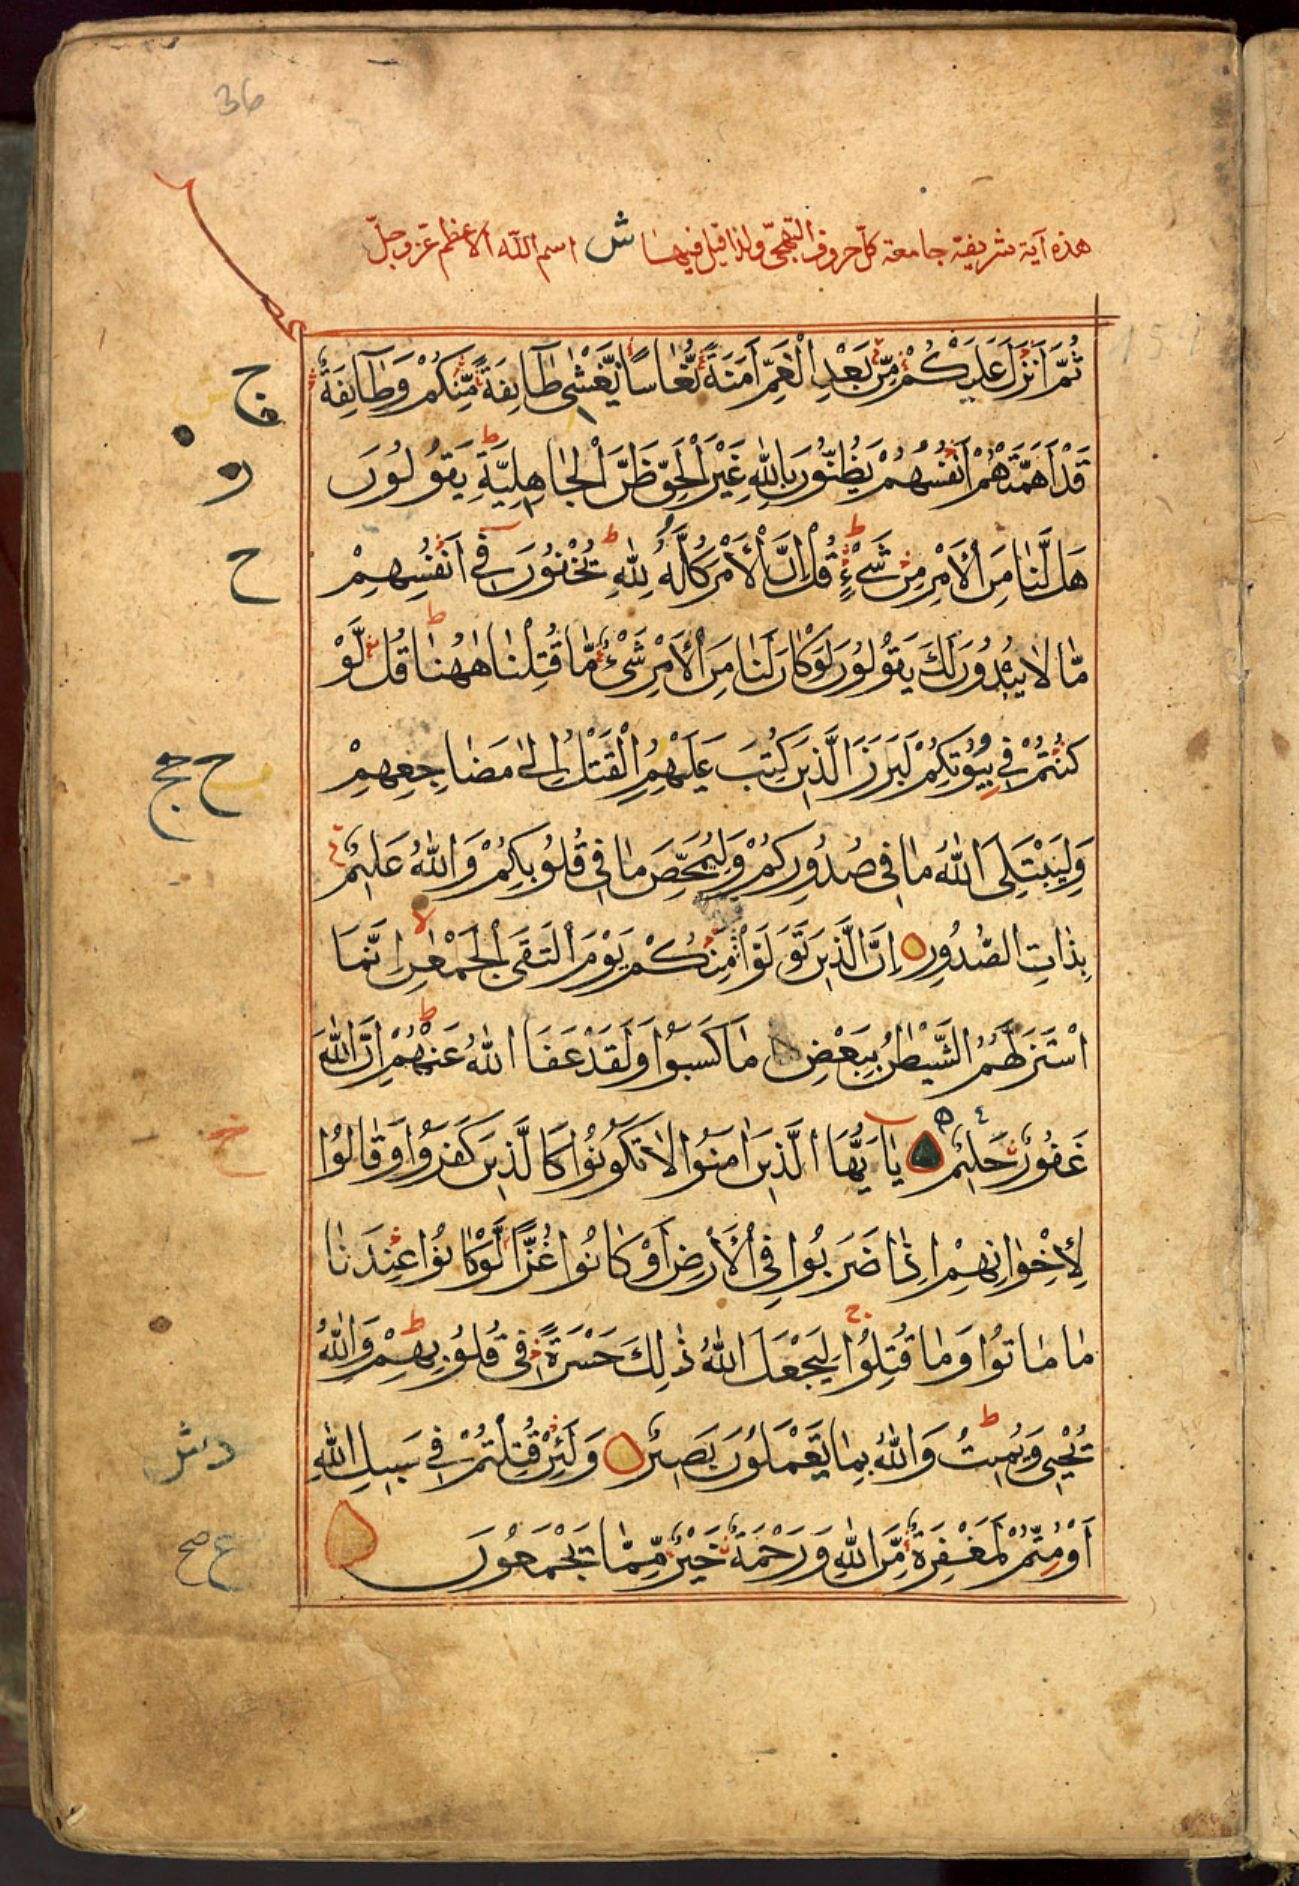 36
هذه آية شريفة جامعة كل حروف التهجى ولذا قيل فيها ش اسم الله الاعظم عزوجل
ثُمَّ اَنْزَلَ عَلَيْكُمْ مِّنْ بَعْدِ الْغَمِّ اَمَنَةً نُّعَاسًا يَّغْشٰى طَآئِفَةً مِّنْكُمْ وَطَآئِفَةٌ
قَدْ اَهَمَّتْهُمْ اَنْفُسُهُمْ يَظُنُّونَ بِاللّٰهِ غَيْرَ الْحَقِّ ظَنَّ الْجَاهِلِيَّةِ يَقُولُونَ
هَلْ لَّنَا مِنَ الْاَمْرِ مِنْ شَيْءٍ قُلْ اِنَّ الْاَمْرَ كُلَّهُ لِلّٰهِ يُخْفُونَ فِي اَنْفُسِهِمْ
مَّا لَا يُبْدُونَ لَكَ يَقُولُونَ لَوْ كَانَ لَنَا مِنَ الْاَمْرِ شَيْءٌ مَّا قُتِلْنَا هٰهُنَا قُلْ لَّوْ
كُنْتُمْ فِي بُيُوتِكُمْ لَبَرَزَ الَّذِينَ كُتِبَ عَلَيْهِمُ الْقَتْلُ اِلٰى مَضَاجِعِهِمْ
وَلِيَبْتَلِيَ اللّٰهُ مَا فِي صُدُورِكُمْ وَلِيُمَحِّصَ مَا فِي قُلُوبِكُمْ وَاللّٰهُ عَلِيمٌ
بِذَاتِ الصُّدُورِ اِنَّ الَّذِينَ تَوَلَّوْا مِنْكُمْ يَوْمَ الْتَقَى الْجَمْعٰنِ اِنَّمَا
اسْتَزَلَّهُمُ الشَّيْطٰنُ بِبَعْضِ مَا كَسَبُوا وَلَقَدْ عَفَا اللّٰهُ عَنْهُمْ اِنَّ اللّٰهَ
غَفُورٌ حَلِيمٌ يَا اَيُّهَا الَّذِينَ اٰمَنُوا لَا تَكُونُوا كَالَّذِينَ كَفَرُوا وَقَالُوا
لِاِخْوَانِهِمْ اِذَا ضَرَبُوا فِي الْاَرْضِ اَوْ كَانُوا غُزًّى لَّوْ كَانُوا عِنْدَنَا
مَا مَاتُوا وَمَا قُتِلُوا لِيَجْعَلَ اللّٰهُ ذٰلِكَ حَسْرَةً فِي قُلُوبِهِمْ وَاللّٰهُ
يُحْيِي وَيُمِيتُ وَاللّٰهُ بِمَا يَعْمَلُونَ بَصِيرٌ وَلَئِنْ قُتِلْتُمْ فِي سَبِيلِ اللّٰهِ
اَوْ مُتُّمْ لَمَغْفِرَةٌ مِّنَ اللّٰهِ وَرَحْمَةٌ خَيْرٌ مِّمَّا يَجْمَعُونَ